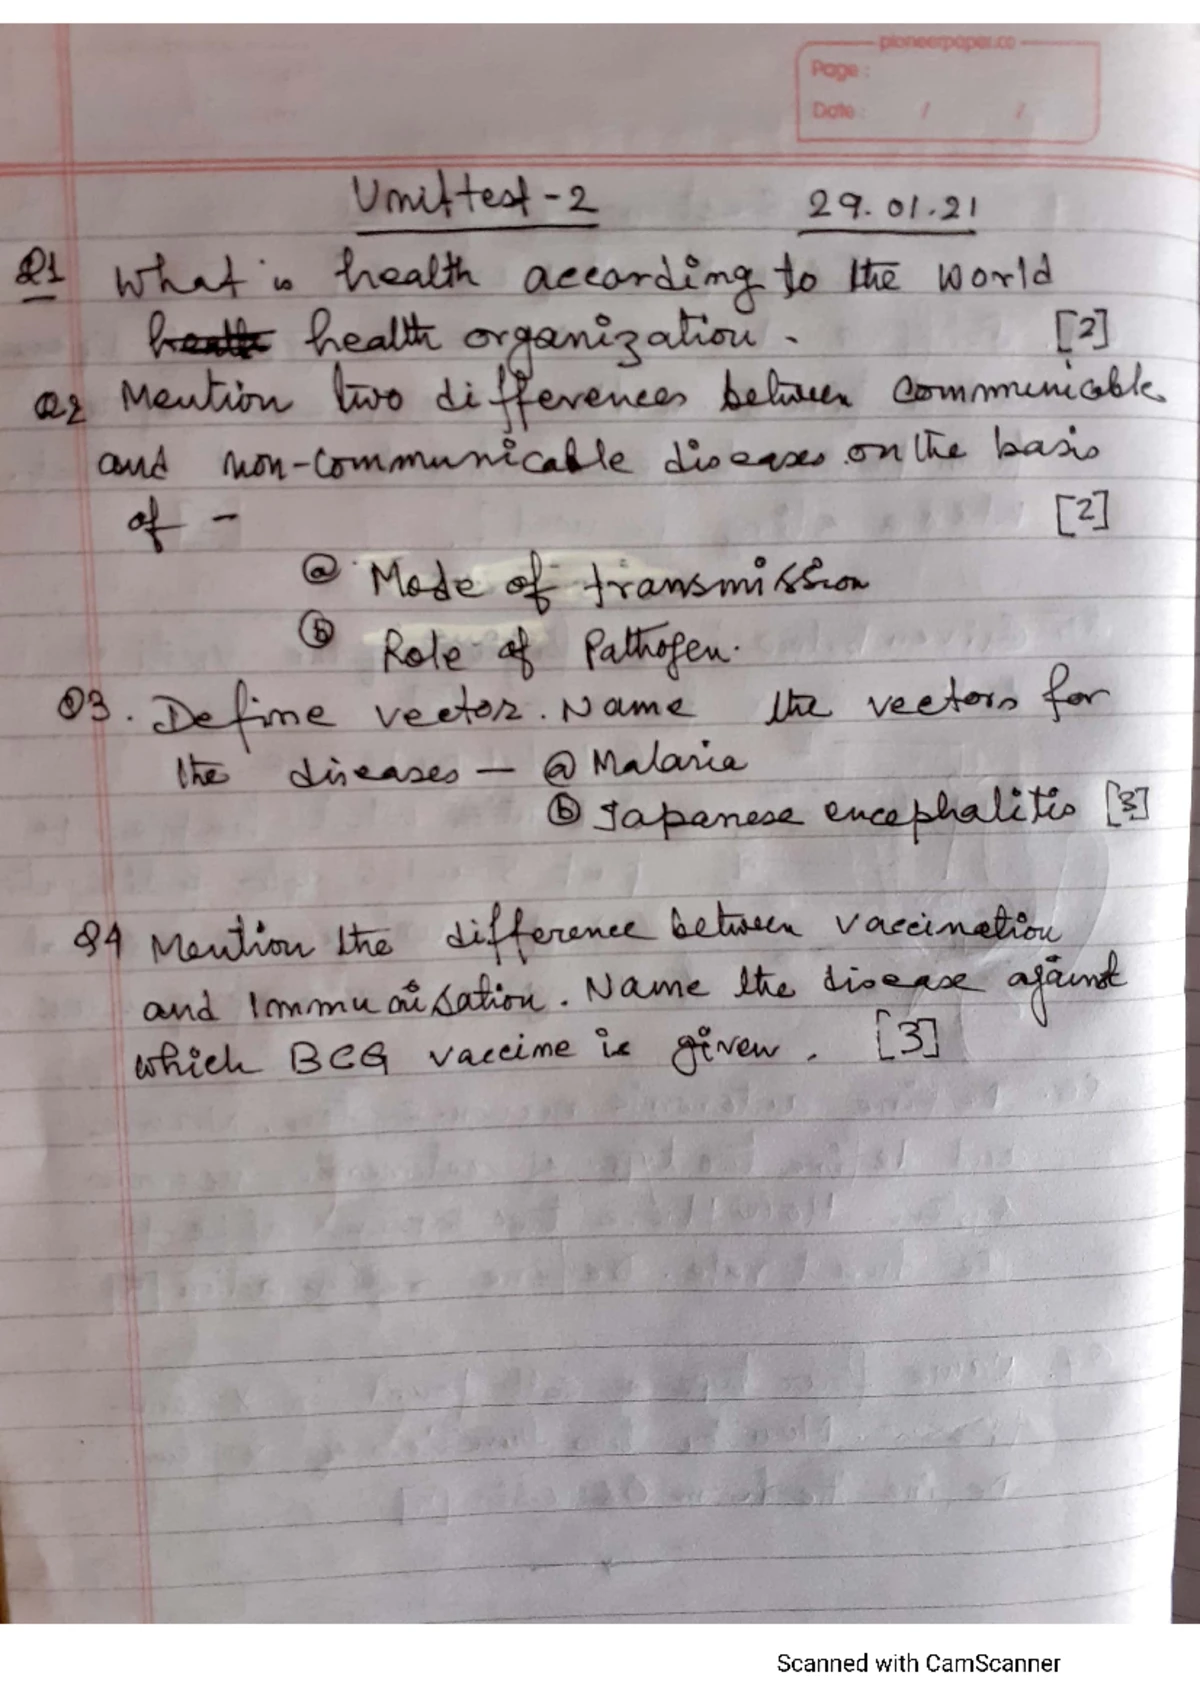 pioneerpaper.co
Page :
Date : / /
Unit test - 2 29.01.21
Q1 What is health according to the World
health organization. [2]
Q2 Mention two differences between Communicable
and non-communicable diseases on the basis
of - [2]
(a) Mode of transmission
(b) Role of Pathogen.
Q3. Define vector. Name the vectors for
the diseases — (a) Malaria
(b) Japanese encephalitis [3]
Q4 Mention the difference between vaccination
and Immunisation. Name the disease against
which BCG vaccine is given. [3]
Scanned with CamScanner